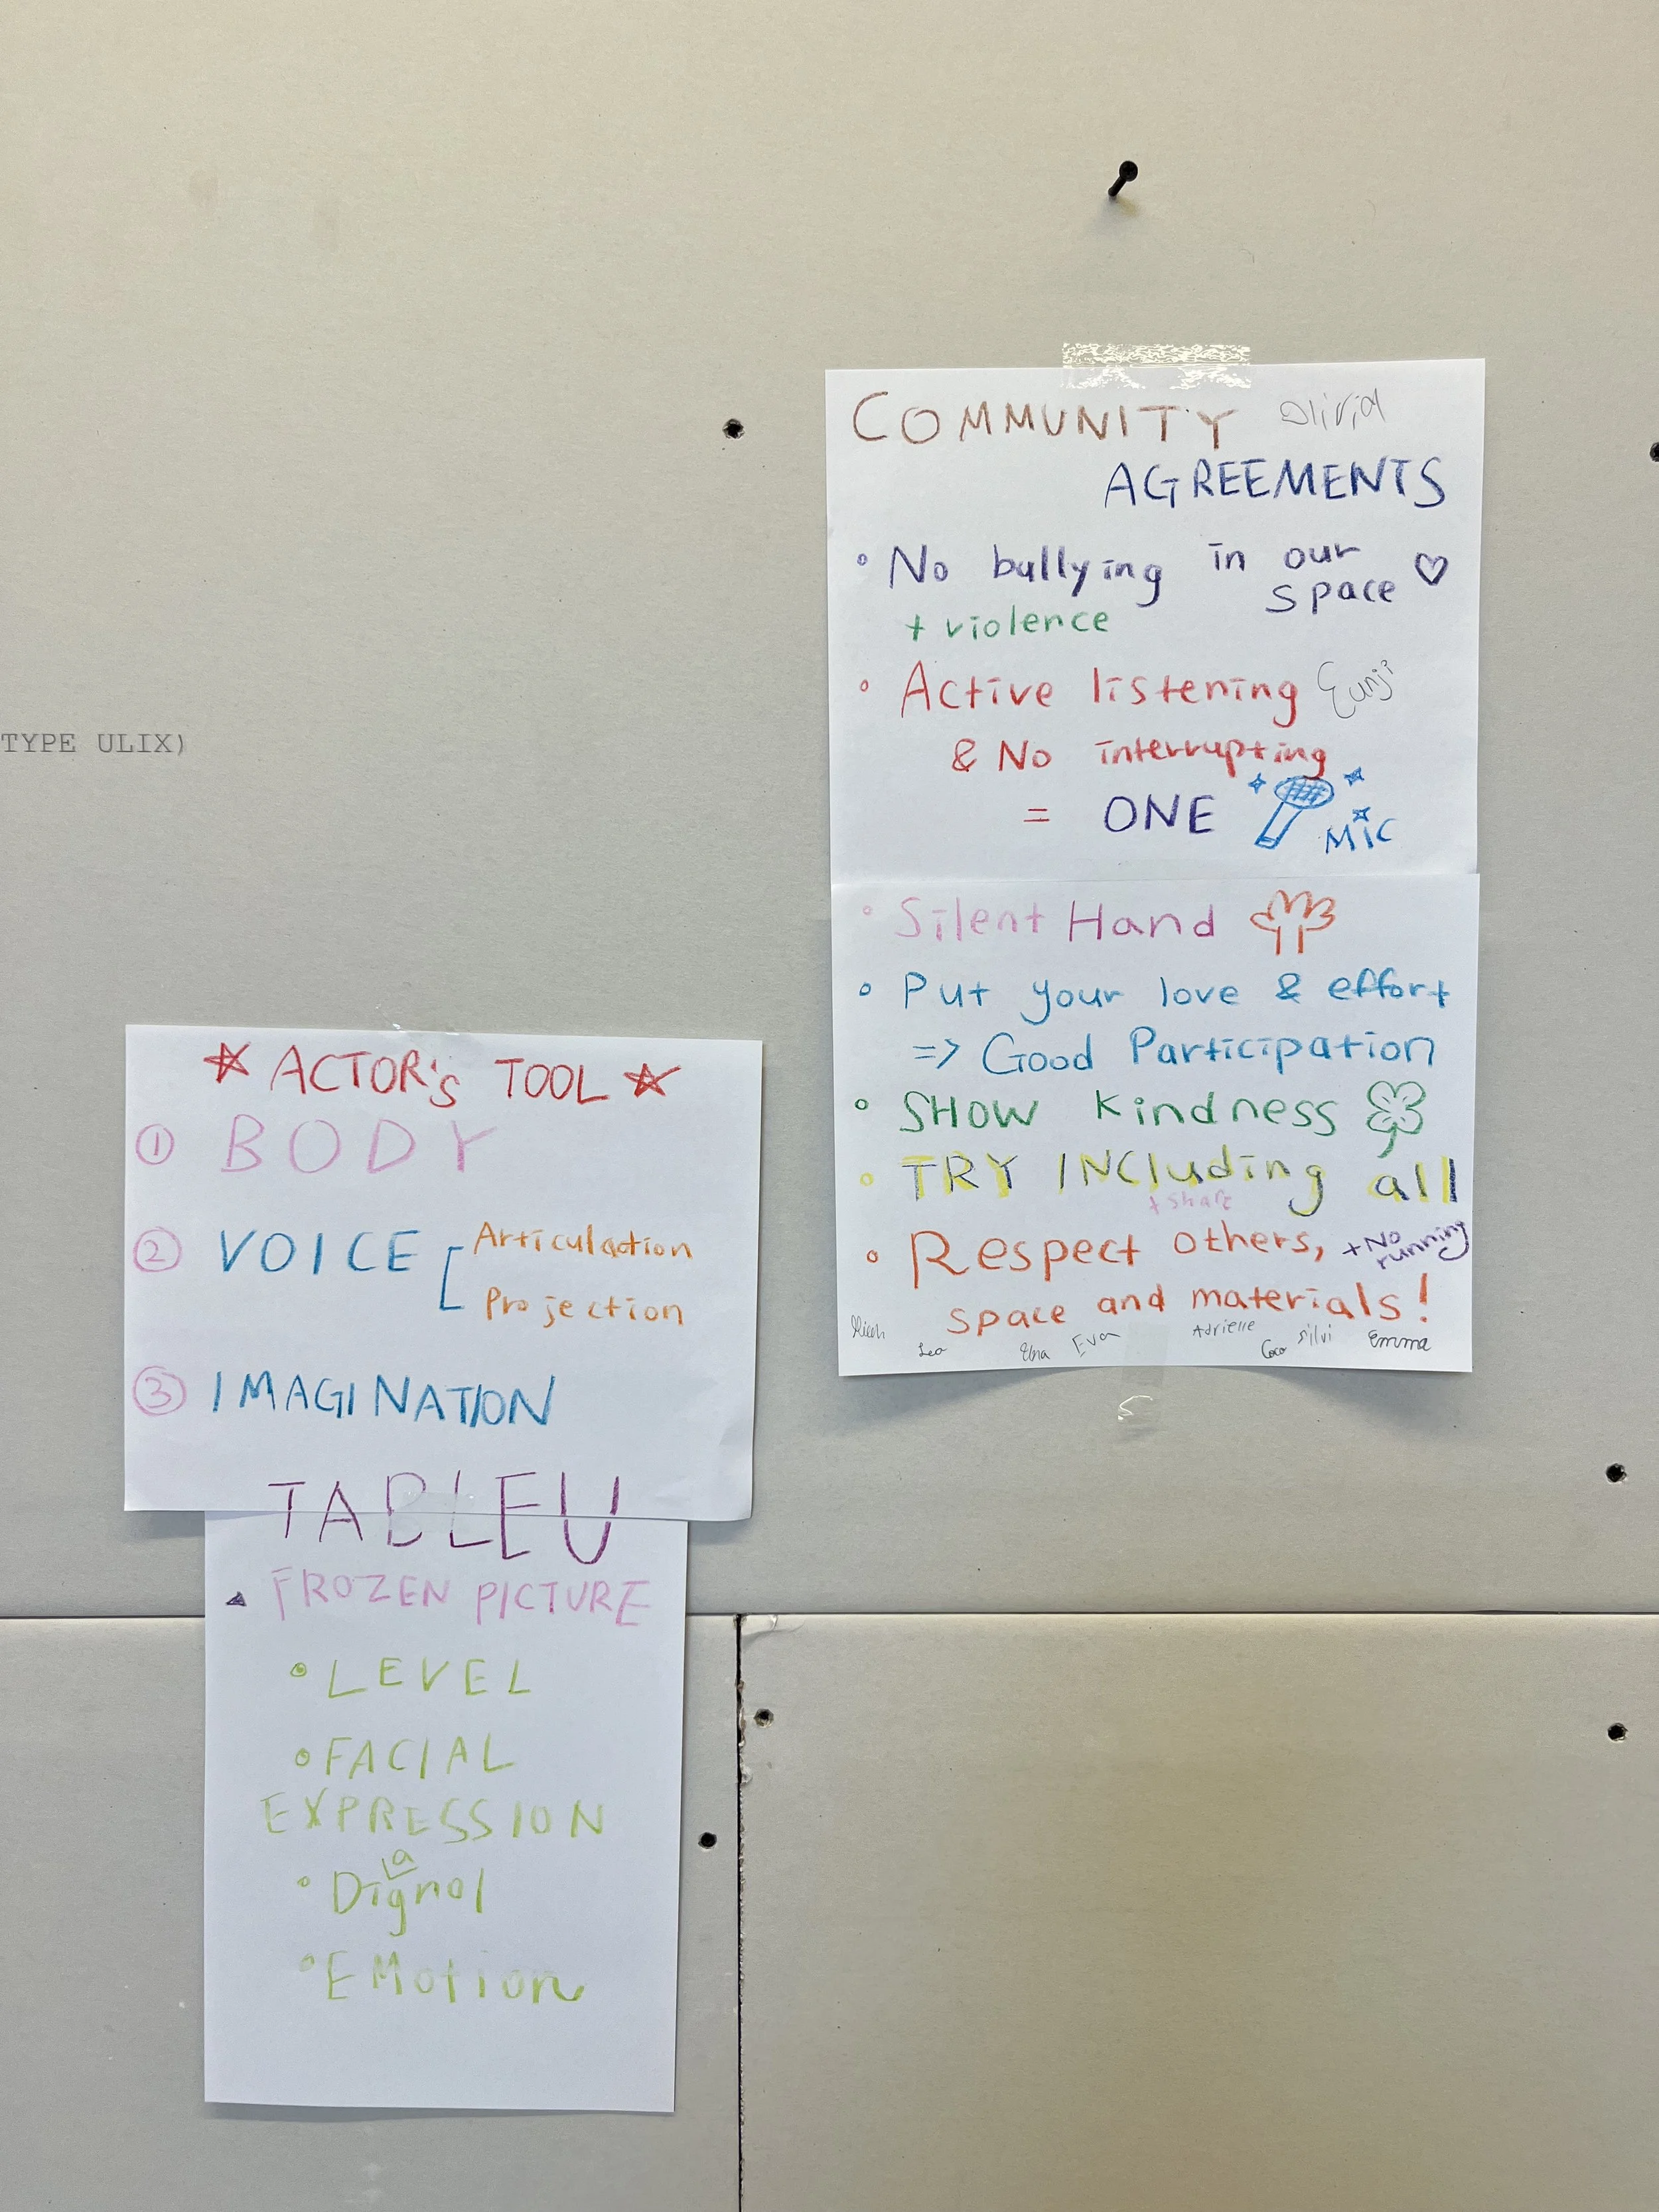 TYPE ULIX)
COMMUNITY Olivia
AGREEMENTS
No bullying in our
space
+ violence
Active listening Eunji
& No interrupting
= ONE MIC
Silent Hand
Put your love & effort
=> Good Participation
SHOW kindness
TRY INCluding all
+ share
Respect others, +No
running
space and materials!
Leo Eva Adrielle Coco Silvi Emma
ACTOR's TOOL
① BODY
② VOICE Articulaction
Projection
③ IMAGINATION
TABLEU
FROZEN PICTURE
LEVEL
FACIAL
EXPRESSION
a
Dignol
EMotion